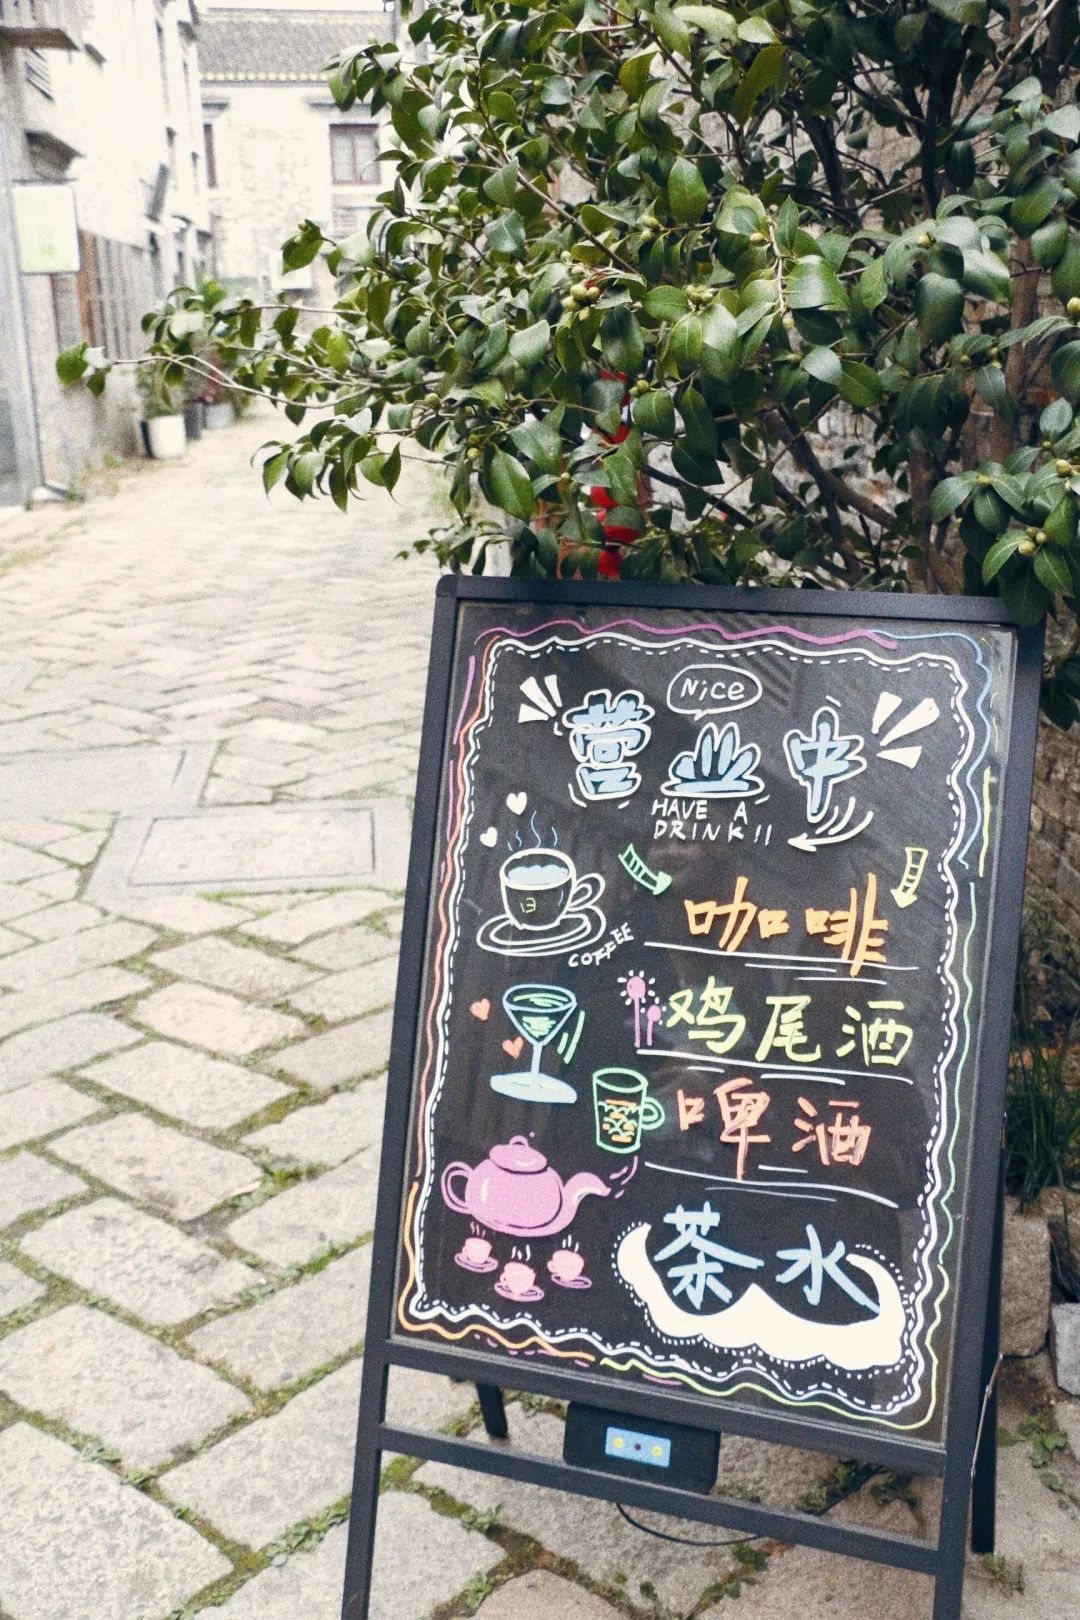 Nice
营业中
HAVE A
DRINK!!
COFFEE
咖啡
鸡尾酒
啤酒
茶水